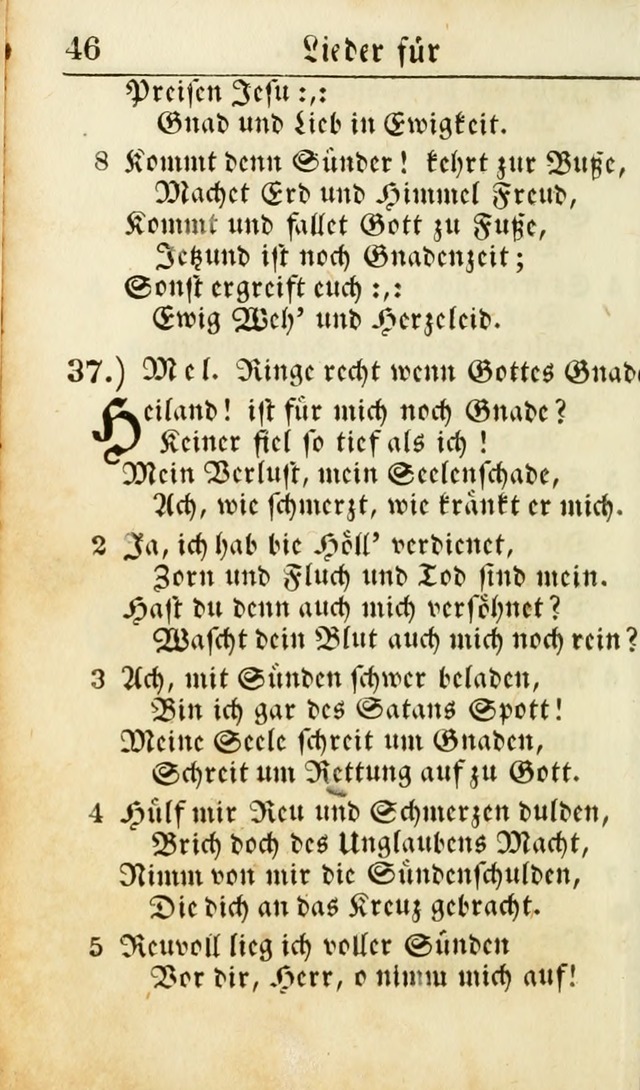 46 Lieder für
Preisen Jesu :,:
Gnad und Lieb in Ewigkeit.
8 Kommt denn Sünder! kehrt zur Buße,
Machet Erd und Himmel Freud,
Kommt und fallet Gott zu Fuße,
Jetzund ist noch Gnadenzeit;
Sonst ergreift euch :,:
Ewig Weh’ und Herzeleid.
37.) Mel. Ringe recht wenn Gottes Gnade
Heiland! ist für mich noch Gnade?
Keiner fiel so tief als ich!
Mein Verlust, mein Seelenschade,
Ach, wie schmerzt, wie kränkt er mich.
2 Ja, ich hab die Höll’ verdienet,
Zorn und Fluch und Tod sind mein.
Hast du denn auch mich versöhnet?
Wascht dein Blut auch mich noch rein?
3 Ach, mit Sünden schwer beladen,
Bin ich gar des Satans Spott!
Meine Seele schreit um Gnaden,
Schreit um Rettung auf zu Gott.
4 Hülf mir Reu und Schmerzen dulden,
Brich doch des Unglaubens Macht,
Nimm von mir die Sündenschulden,
Die dich an das Kreuz gebracht.
5 Reuvoll lieg ich voller Sünden
Vor dir, Herr, o nimm mich auf!